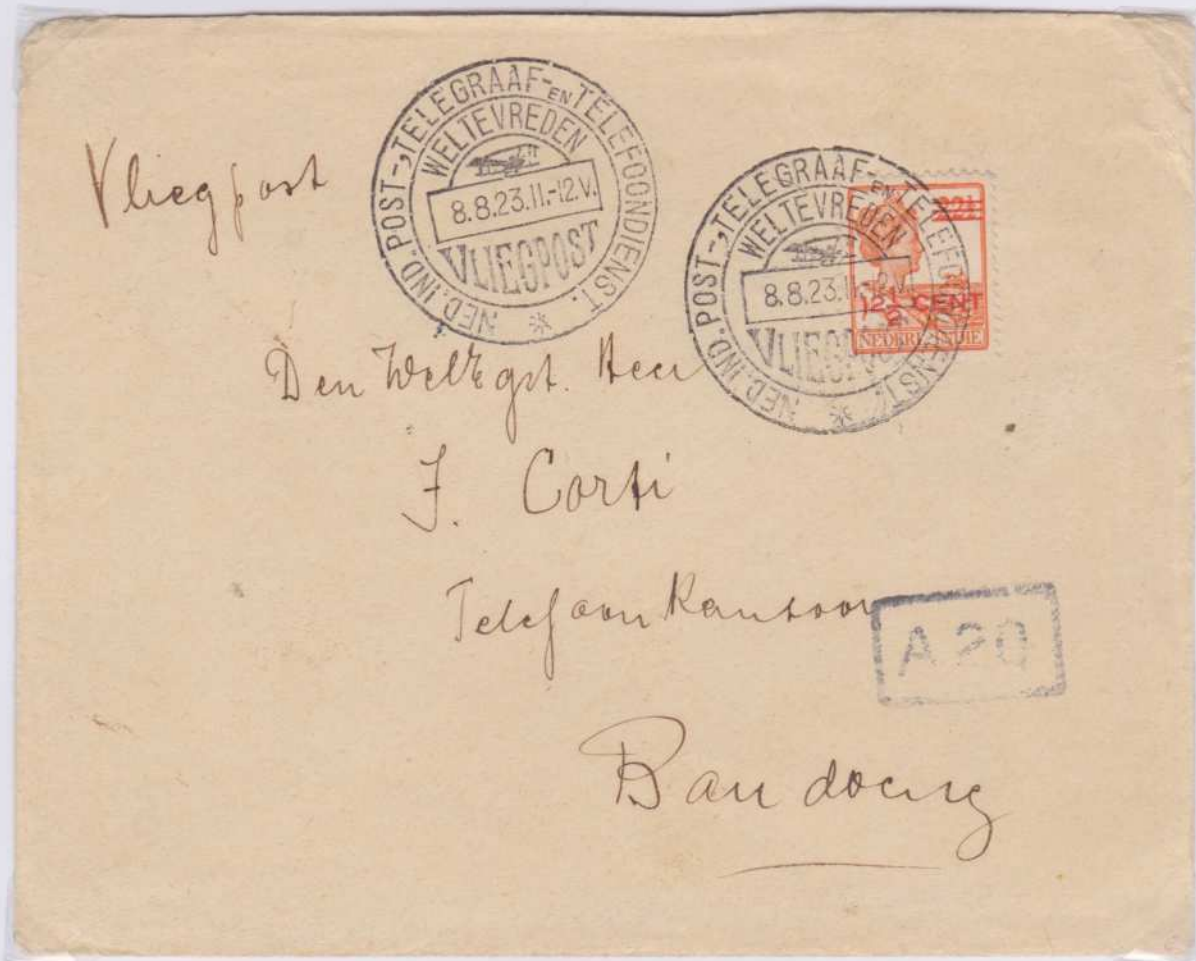 Vliegpost
NED. IND. POST-, TELEGRAAF- EN TELEFOONDIENST.
WELTEVREDEN
8.8.23.11.-12.V.
VLIEGPOST
NED. IND. POST-, TELEGRAAF- EN TELEFOONDIENST.
WELTEVREDEN
8.8.23.11.-12.V.
VLIEGPOST
22½
12½ CENT
NEDERL. INDIE
Den WelEgst. Heer
J. Corti
Telefoonkantoor
A 20
Bandoeng